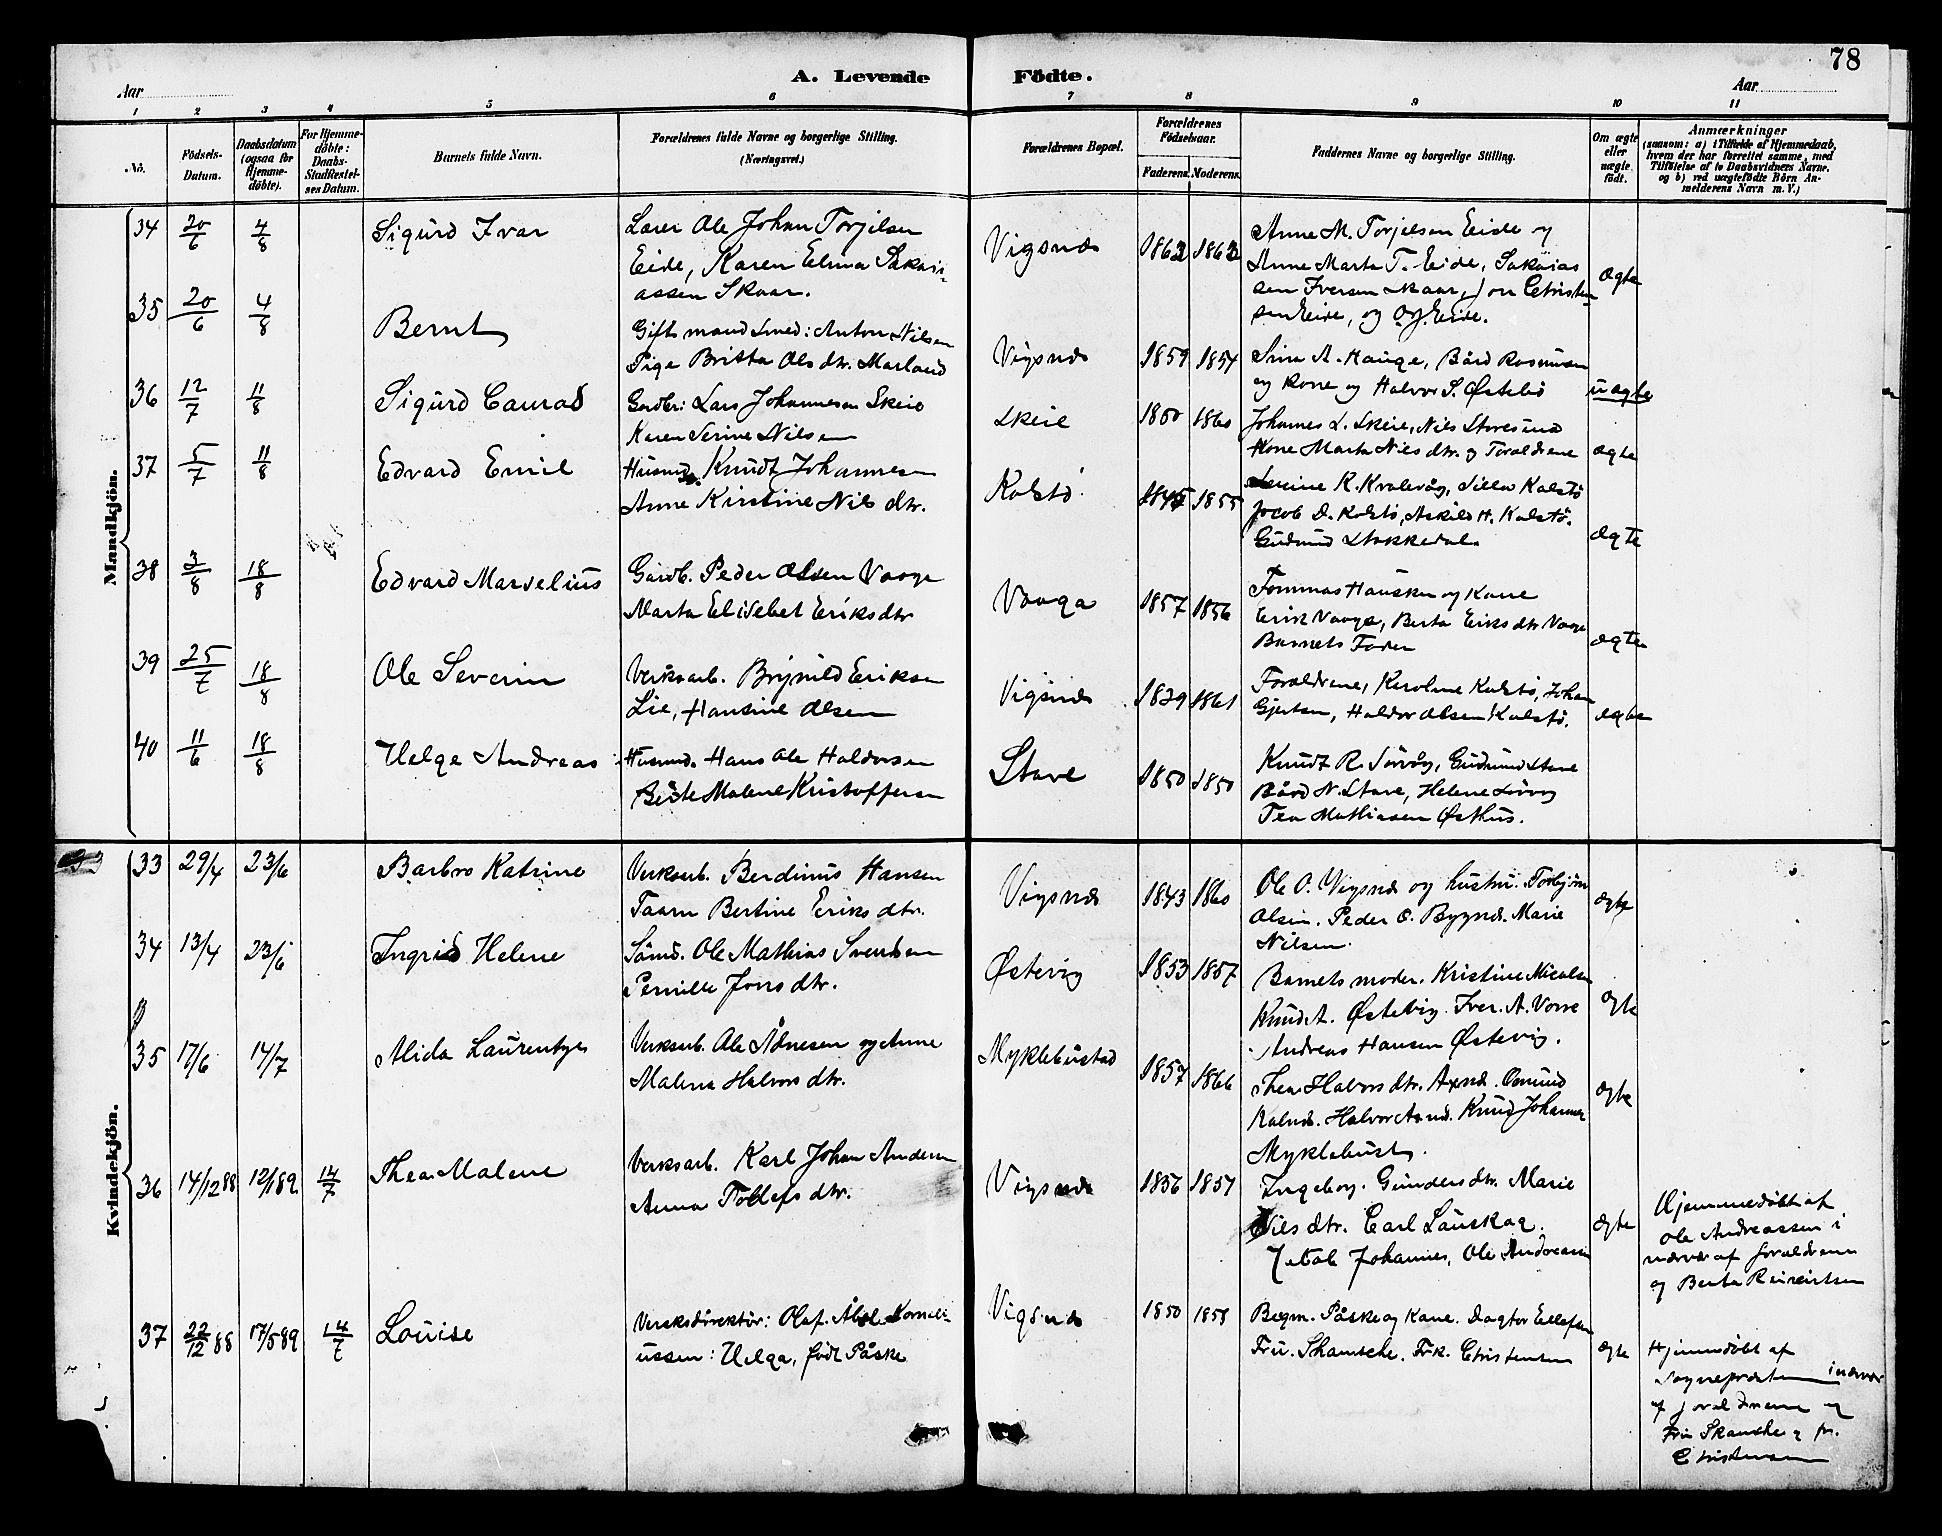 78
A. Levende Födte.
Aar
Aar
1 2 3 4 5 6 7 8 9 10 11
No.
Födsels-
Datum.
Daabsdatum
(ogsaa for
Hjemme-
döbte).
For Hjemme-
döbte:
Daabs-
Stadfæstel-
ses Datum.
Barnets fulde Navn.
Forældrenes fulde Navne og borgerlige Stilling.
(Næringsvei.)
Forældrenes Bopæl.
Forældrenes
Födselsaar.
Faderens. Moderens.
Faddernes Navne og borgerlige Stilling.
Om ægte
eller
uægte
födt.
Anmærkninger
(saasom: a) i Tilfælde af Hjemmedaab,
hvem der har forrettet samme, med
Tilföielse af to Daabsvidners Navne.
og b) ved uægtefödte Börn An-
melderens Navn m. V.)
Mandkjön.
34 20/6 4/8 Sigurd Ivar
Lærer Ole Johan Torjilsen
Eide, Karen Elina Sakari-
assen Skaar.
Vigsnæs 1862 1862
Anne M. Torjelsen Eide og
Anne Marta T. Eide, Sakaias
sen Iversen Skaar, Jon Christen
sen Eide, og O. J. Eide.
ægte
35 20/6 4/8 Bernt
Gift mand Smed: Anton Nilsen
Pige Britta Ols dtr. Marland
Vigsnæs 1859 1854
Sina A. Hauge, Bård Rasmusen
og Kone og Halvor S. Østebö
uægte
36 12/7 11/8 Sigurd Conrad
Gardbr: Lars Johannesen Skeie
Karen Serine Nilsen
Skeie 1850 1860
Johannes L. Skeie, Nils Storesund
Kone Marta Nils dtr. og Foraldrene
ægte
37 5/7 11/8 Edvard Emil
Husmd. Knudt Johannesen
Anne Kirstine Nils dtr.
Kolstö 1845 1855
K. Kvalevåg, Sille Kolstö
Jacob D. Kolstö, Askild H. Kolstö.
Gudmund Stokkedal.
ægte
38 3/8 18/8 Edvard Marselius
Gårdb. Peder Olsen Vaage
Marta Elisebet Eriks dtr
Vaaga 1857 1856
Tommas Hausken og Kone
Erik Vaage, Berta Eriks dtr Vaage
Barnets Fader
ægte
39 25/7 18/8 Ole Severin
Verksarb. Brynild Eriksen
Lie, Hansine Olsen
Vigsnæs 1829 1861
Foraldrene, Karoline Kolstö, Johan
Gjertsen, Haldor Olsen Kolstö.
ægte
40 11/6 18/8 Helge Andreas
Husmd. Hans Ole Haldorsen
Berte Malene Kristoffersen
Stave 1850 1850
Knudt R. Sörvåg, Gudmund Stave
Bård N. Stave, Helene Sörvåg
Tea Mathiasen Østhus.
Kvindekjön.
33 29/4 23/6 Barbro Katrine
Verksarb. Berdinus Hansen
Taarn Bertine Eriks dtr.
Vigsnæs 1843 1860
Ole O. Vigsnæs og hustru. Torbjörn
Olsen. Peder O. Bygnæs. Marie
Nilsen.
ægte
34 13/4 23/6 Ingrid Helene
Sömd. Ole Mathias Svendsen
Pernille Jons dtr.
Østevig 1853 1857
Barnets moder. Kristine Micalsen
Knud A. Østevig. Iver. A. Vorre
Andreas Hansen Østevig.
ægte
35 17/6 14/7 Alida Laurentze
Verksarb. Ole Ådnesen og Anne
Malena Halvors dtr.
Myklebustad 1857 1866
Thea Halvors dtr. Axnæs. Osmund
Kalnæs. Halvor Axnæs. Knud Johannes
Myklebust.
ægte
36 14/12 88 12/1 89 14/7 Thea Malene
Verksarb. Karl Johan Andersen
Anna Tollefs dtr.
Vigsnæs 1856 1857
Ingeborg. Gunders dtr. Marie
Nils dtr. Carl Lauskag.
Johannes, Ole Andreassen
ægte
Hjemmedöbt af
Ole Andreassen i
nærvær af foraldrene
og Berta Reinertsen
37 22/12 88 17/5 89 14/7 Louise
Verksdirektör: Olaf. Åbel Korneli-
ussen: Helga, född Påske
Vigsnæs 1850 1858
Begm. Påske og Kone. Dogtor Ellefsen
Fru. Skamsche. Frk. Christensen
ægte
Hjemdöbt af
Sognepræsten i nærvær
af foraldrene og
Fru Skansche og fr.
Christensen